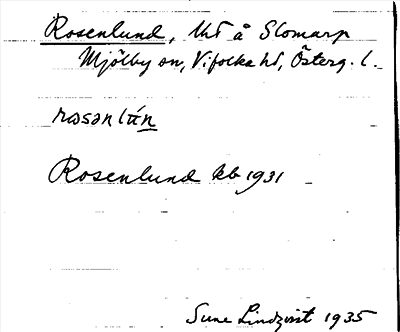 Rosenlund, Uht å Slomarp
Mjölby sn, Vifolka hd, Österg. l.
rosənlún
Rosenlund kb 1931
Sune Lindqvist 1935